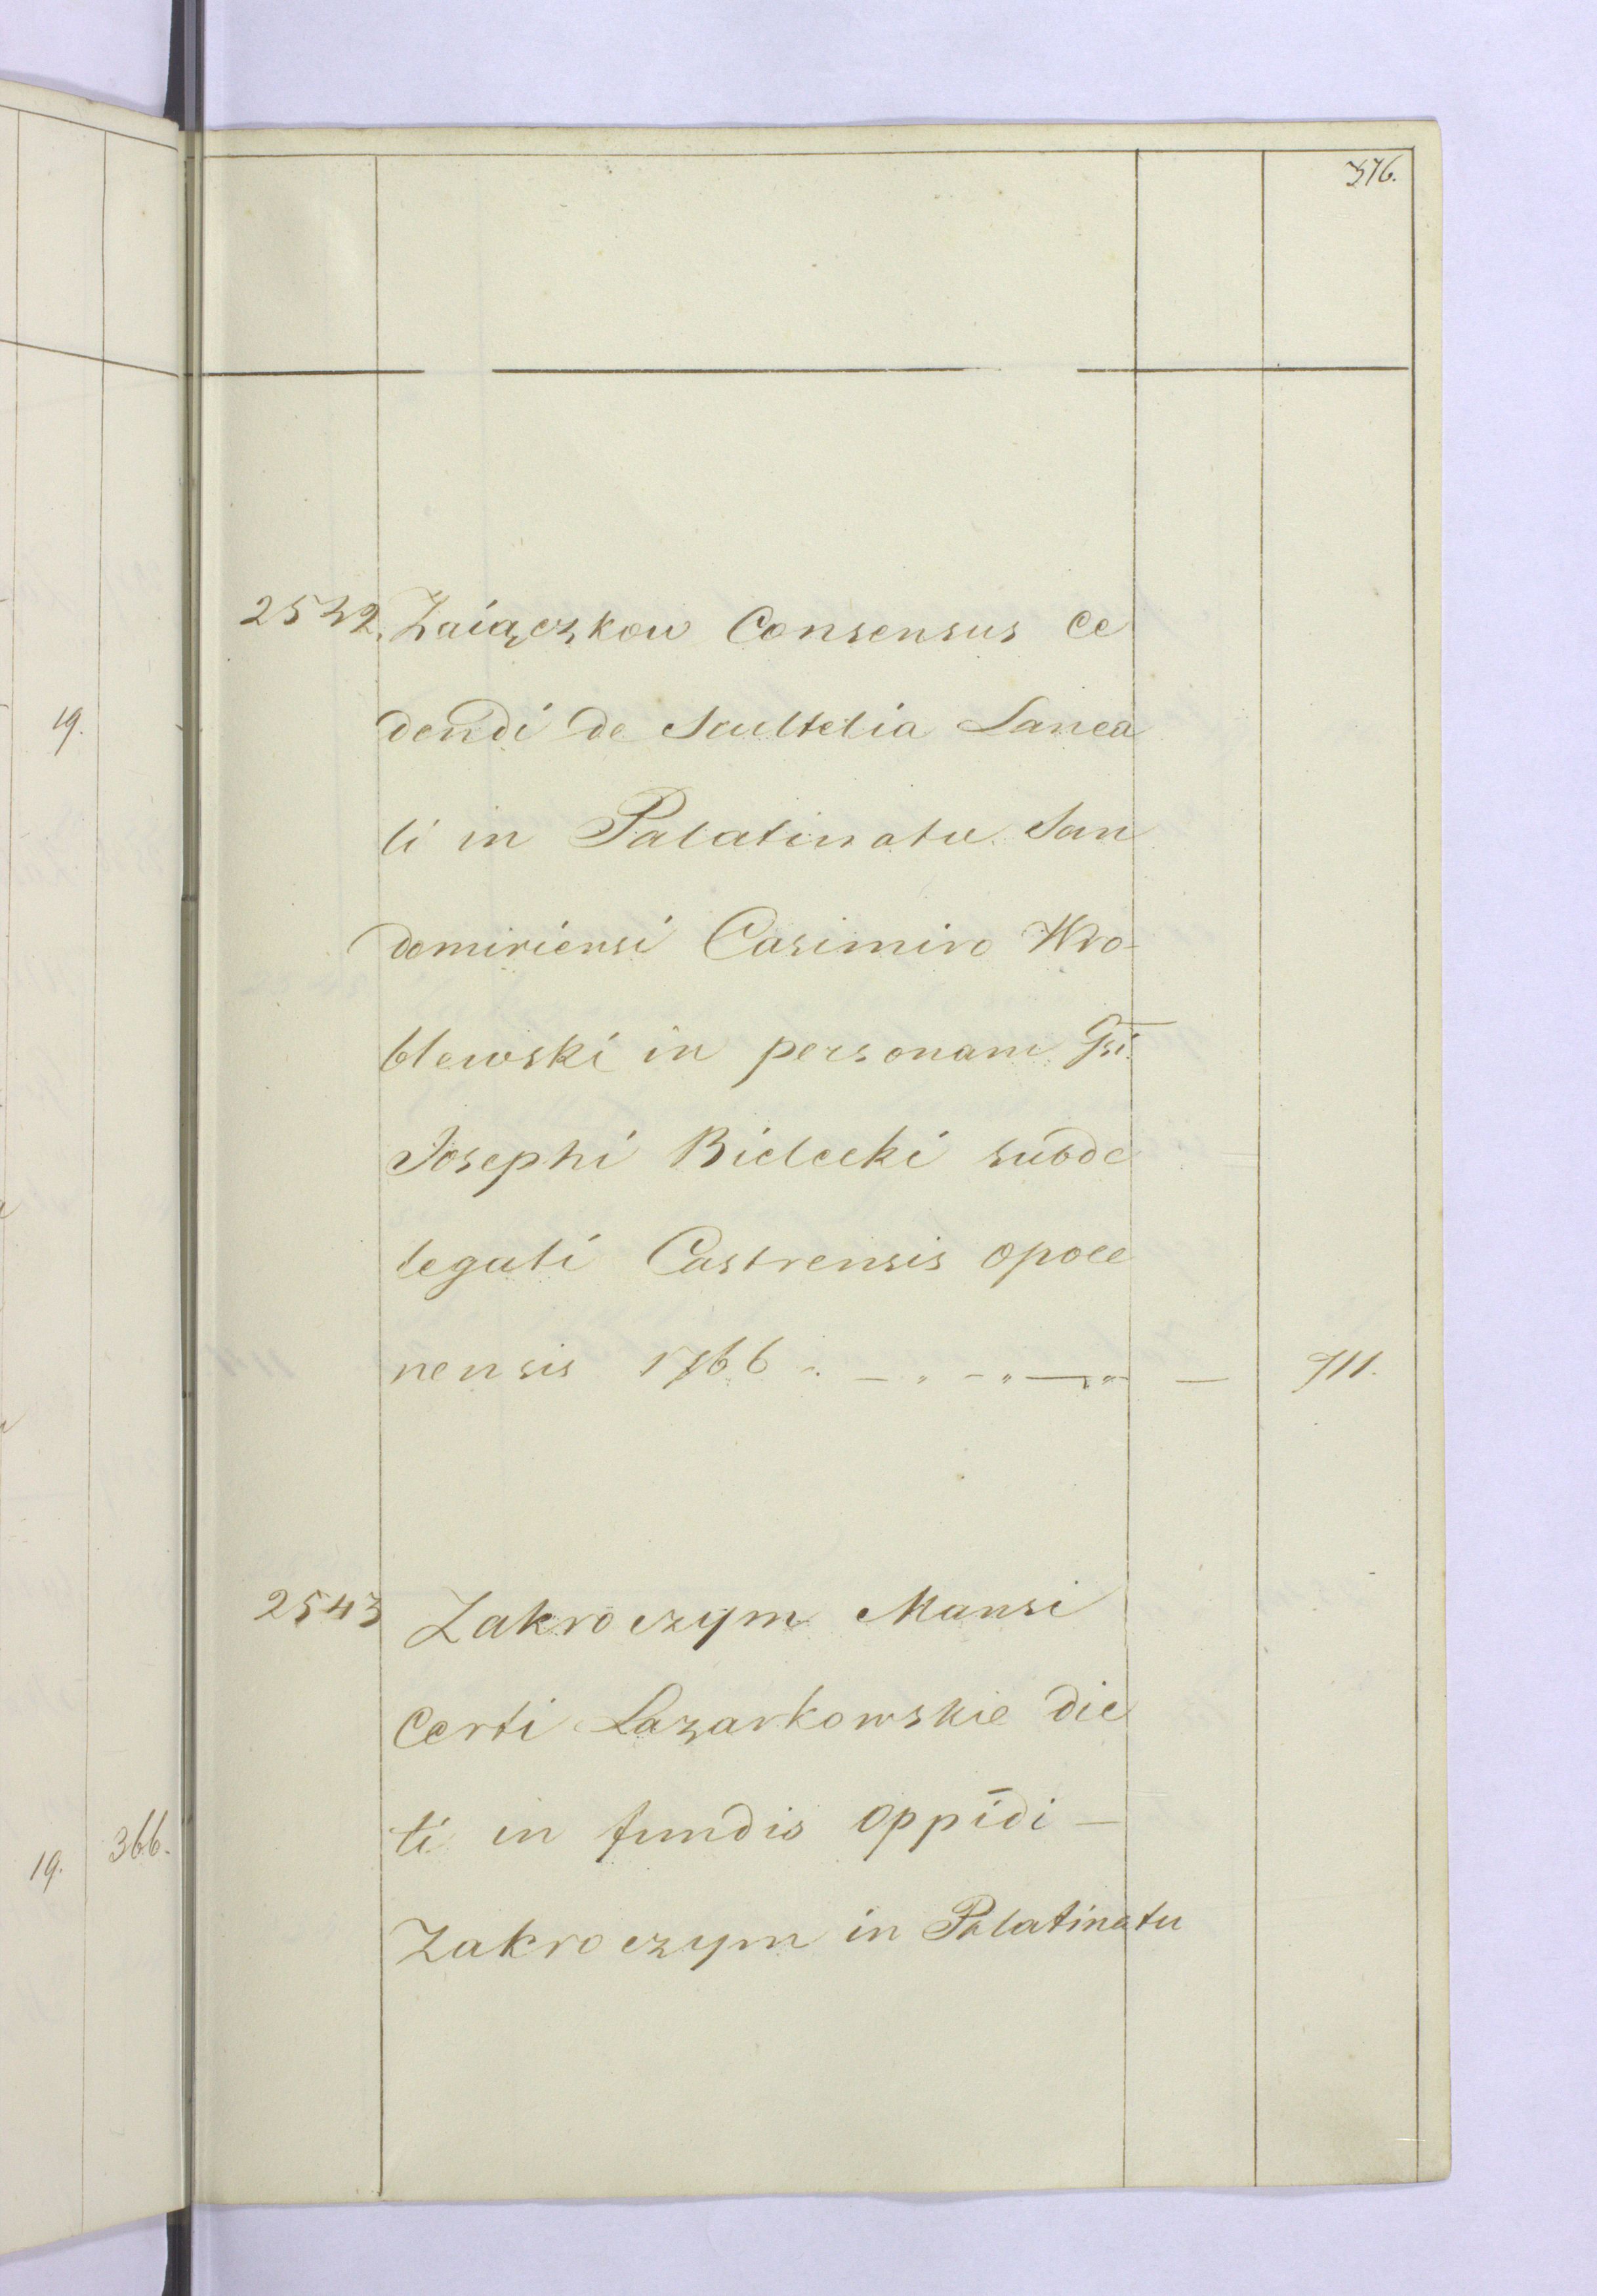 376.
2542. Zaiączkow Consensus Ce
dendi de Scultetia Lanea
li in Palatinatu San
domiriensi Casimiro Wro-
blewski in personam Gsi.
Josephi Bielecki subde
legati Castrensis opoce
nensis 1766 911.
2543 Zakroczym Mansi
Certi Lazarkowskie dic
ti in fundis oppidi
Zakroczym in Palatinatu
19.
19. 366.